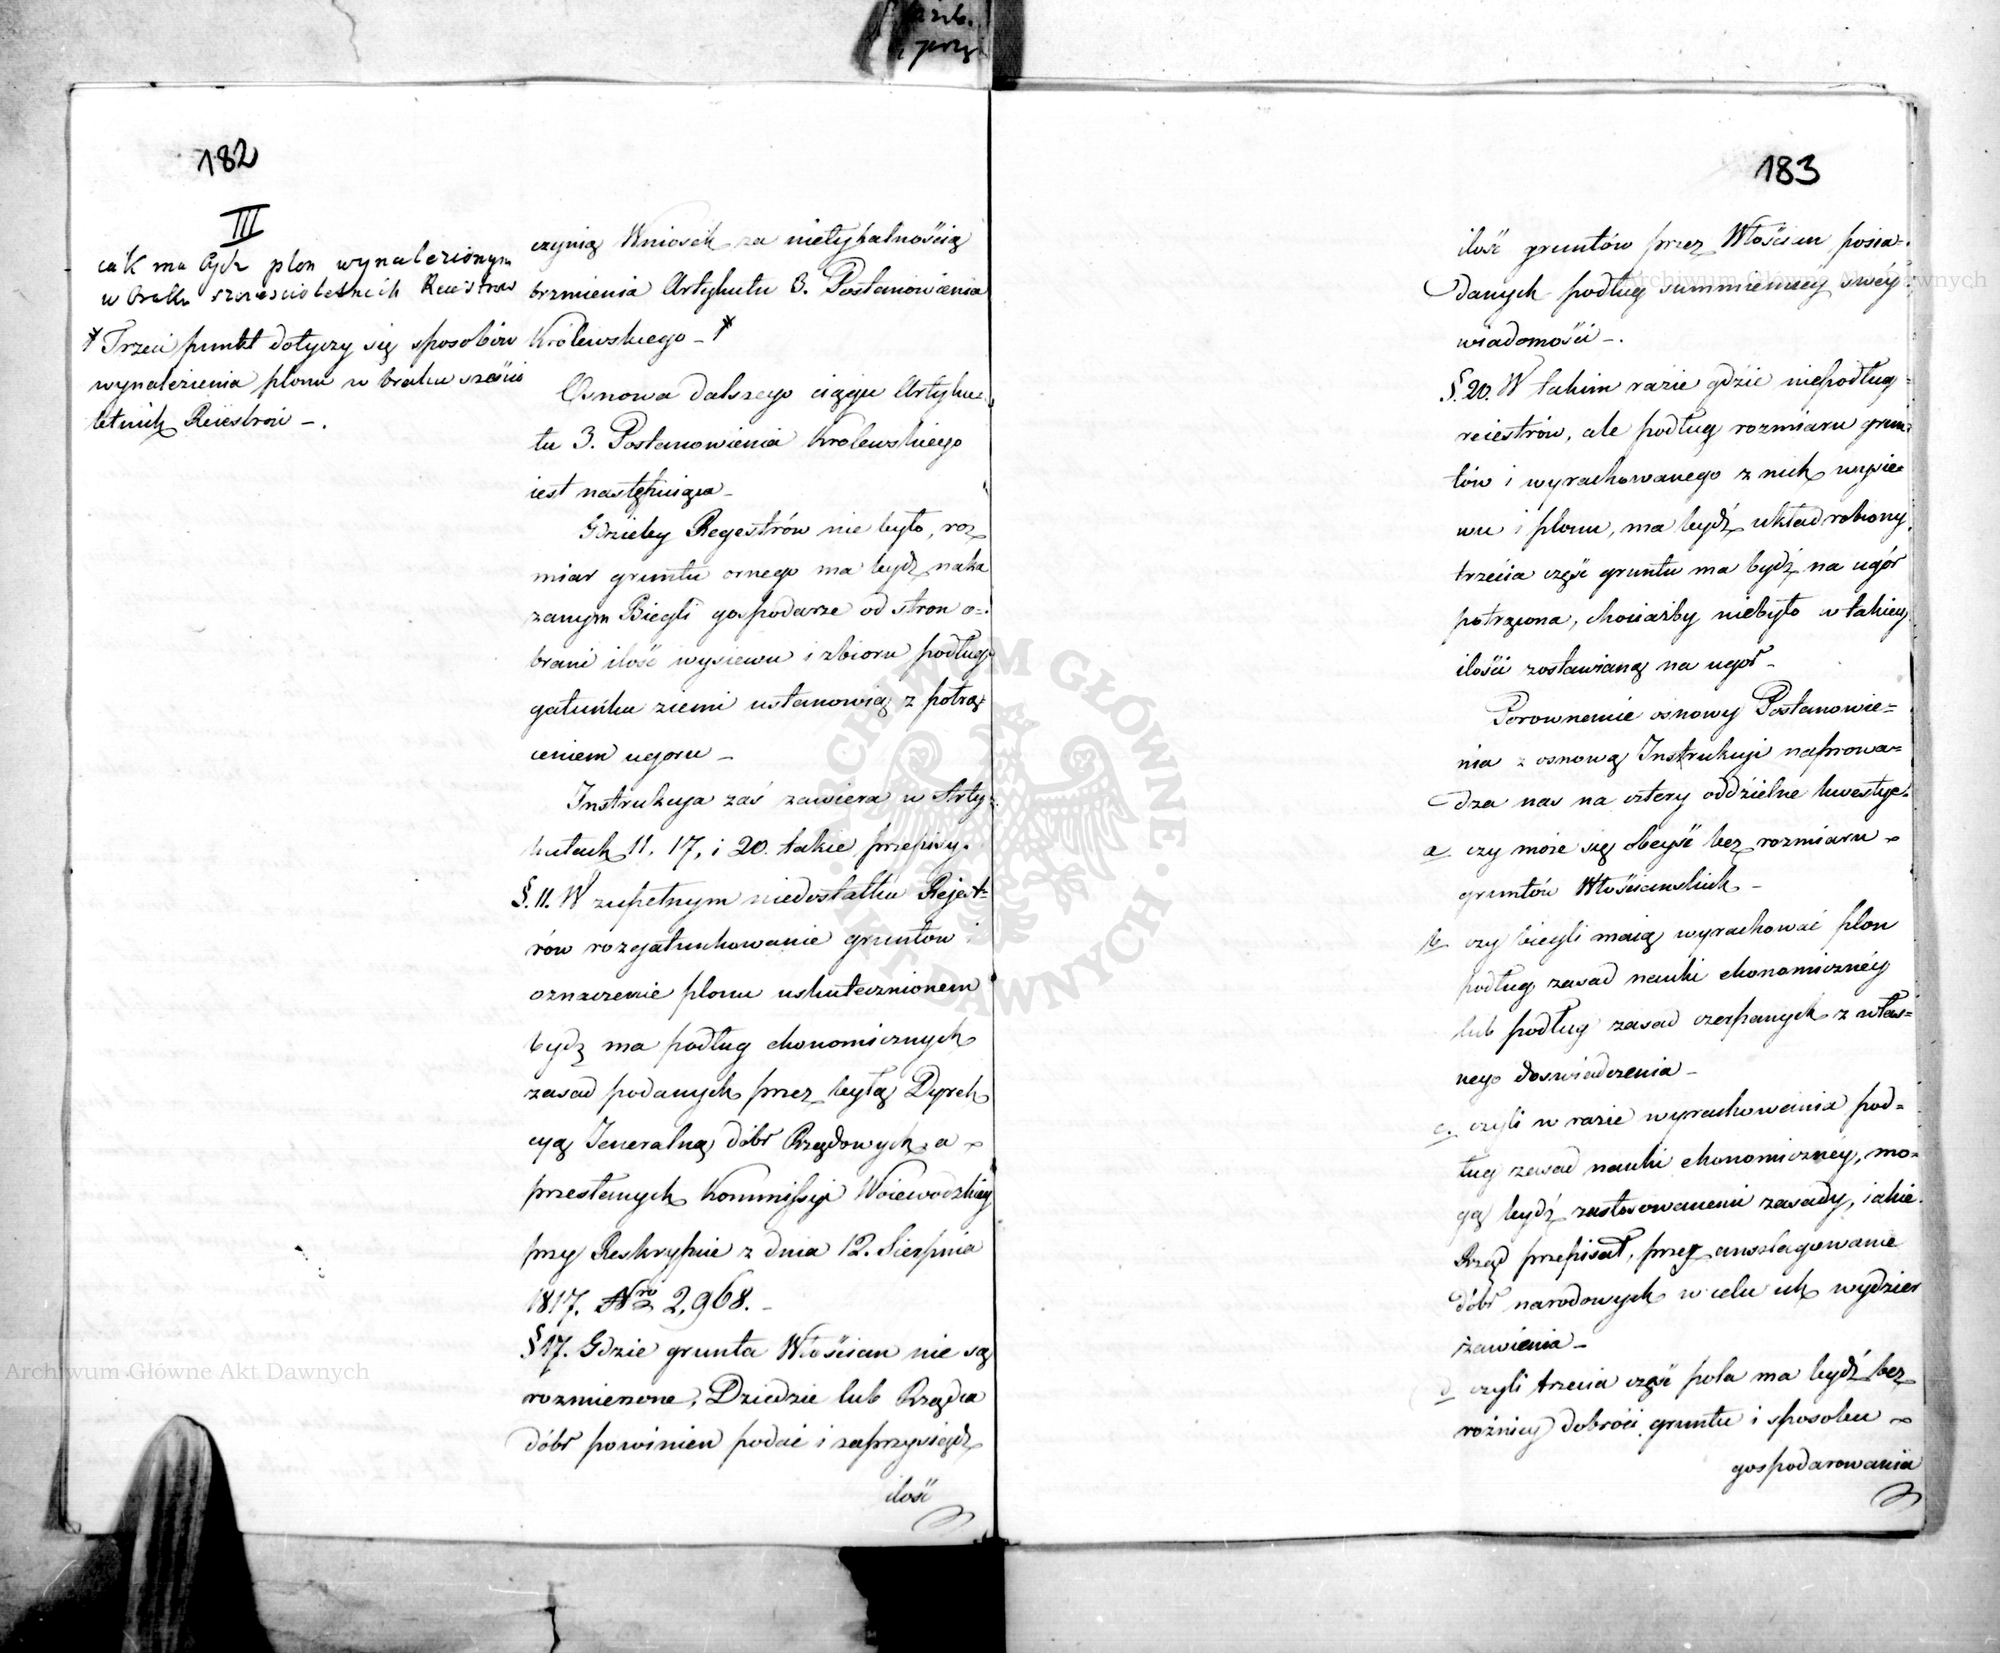 182
III
iak ma bydz plon wynalezionym
w braku szescioletnich Reiestrow
* Trzeci punkt dotyczy się sposobów
wynalezienia plonu w braku sześcio
letnich Reiestrów –.
czynią Wniosek za nietykalnością
brzmienia Artykułu 3. Postanowienia
Królewskiego – *
Osnowa dalszego ciągu Artyku-
łu 3. Postanowienia Królewskiego
iest następuiąca –
Gdzieby Regestrów nie było, roz
miar gruntu ornego ma bydz naka
zanym Biegli gospodarze od stron o-
brani ilość wysiewu i zbioru podług
gatunku ziemi ustanowią z potrą
ceniem ugoru –
Instrukcya zaś zawiera w Arty-
kułach 11. 17, i 20. takie przepisy.
§. 11. W zupełnym niedostatku Rejest-
rów rozgatunkowanie gruntów i
oznaczenie plonu uskutecznionem
bydz ma podług ekonomicznych
zasad podanych przez byłą Dyrek
cyą Jeneralną dóbr Rządowych a
przesłanych Kommissyi Woiewodzkiey
przy Reskrypcie z dnia 12. Sierpnia
1817. Nro 2,968. –
§ 17. Gdzie grunta Włościan nie są
rozmierzone, Dziedzic lub Rządca
dóbr powinien podać i zaprzysiądz
ilość
183
ilość gruntów przez Włościan posia-
danych podług summienney swéy
wiadomości –.
§. 20. W takim razie gdzie niepodług
reiestrów, ale podług rozmiaru grun-
tów i wyrachowanego z nich wysie
wu i plonu, ma bydź układ robiony
trzecia część gruntu ma bydź na ugór
potrącona, chociażby niebyło w takiey
ilości zostawianą na ugor –
Porownanie osnowy Postanowie-
nia z osnową Instrukcyi naprowa-
dza nas na cztery oddzielne kwestye.
a czy może się obeyść bez rozmiaru
gruntów Włościanskich –
b czy biegli maią wyrachować plon
podług zasad nauki ekonomicznéy
lub podług zasad czerpanych z włas-
nego doswiadczenia –
c. czyli w razie wyrachowania pod-
ług zasad nauki ekonomicznéy, mo-
gą bydź zastosowanemi zasady, iakie
Rząd przepisał, przez anszlagowanie
dóbr narodowych w celu ich wydzier
żawienia –
d czyli trzecia część pola ma bydź bez
różnicy dobroci gruntu i sposobu
gospodarowania
Archiwum Główne Akt Dawnych
Archiwum Główne Akt Dawnych
ARCHIWUM GŁÓWNE AKT DAWNYCH